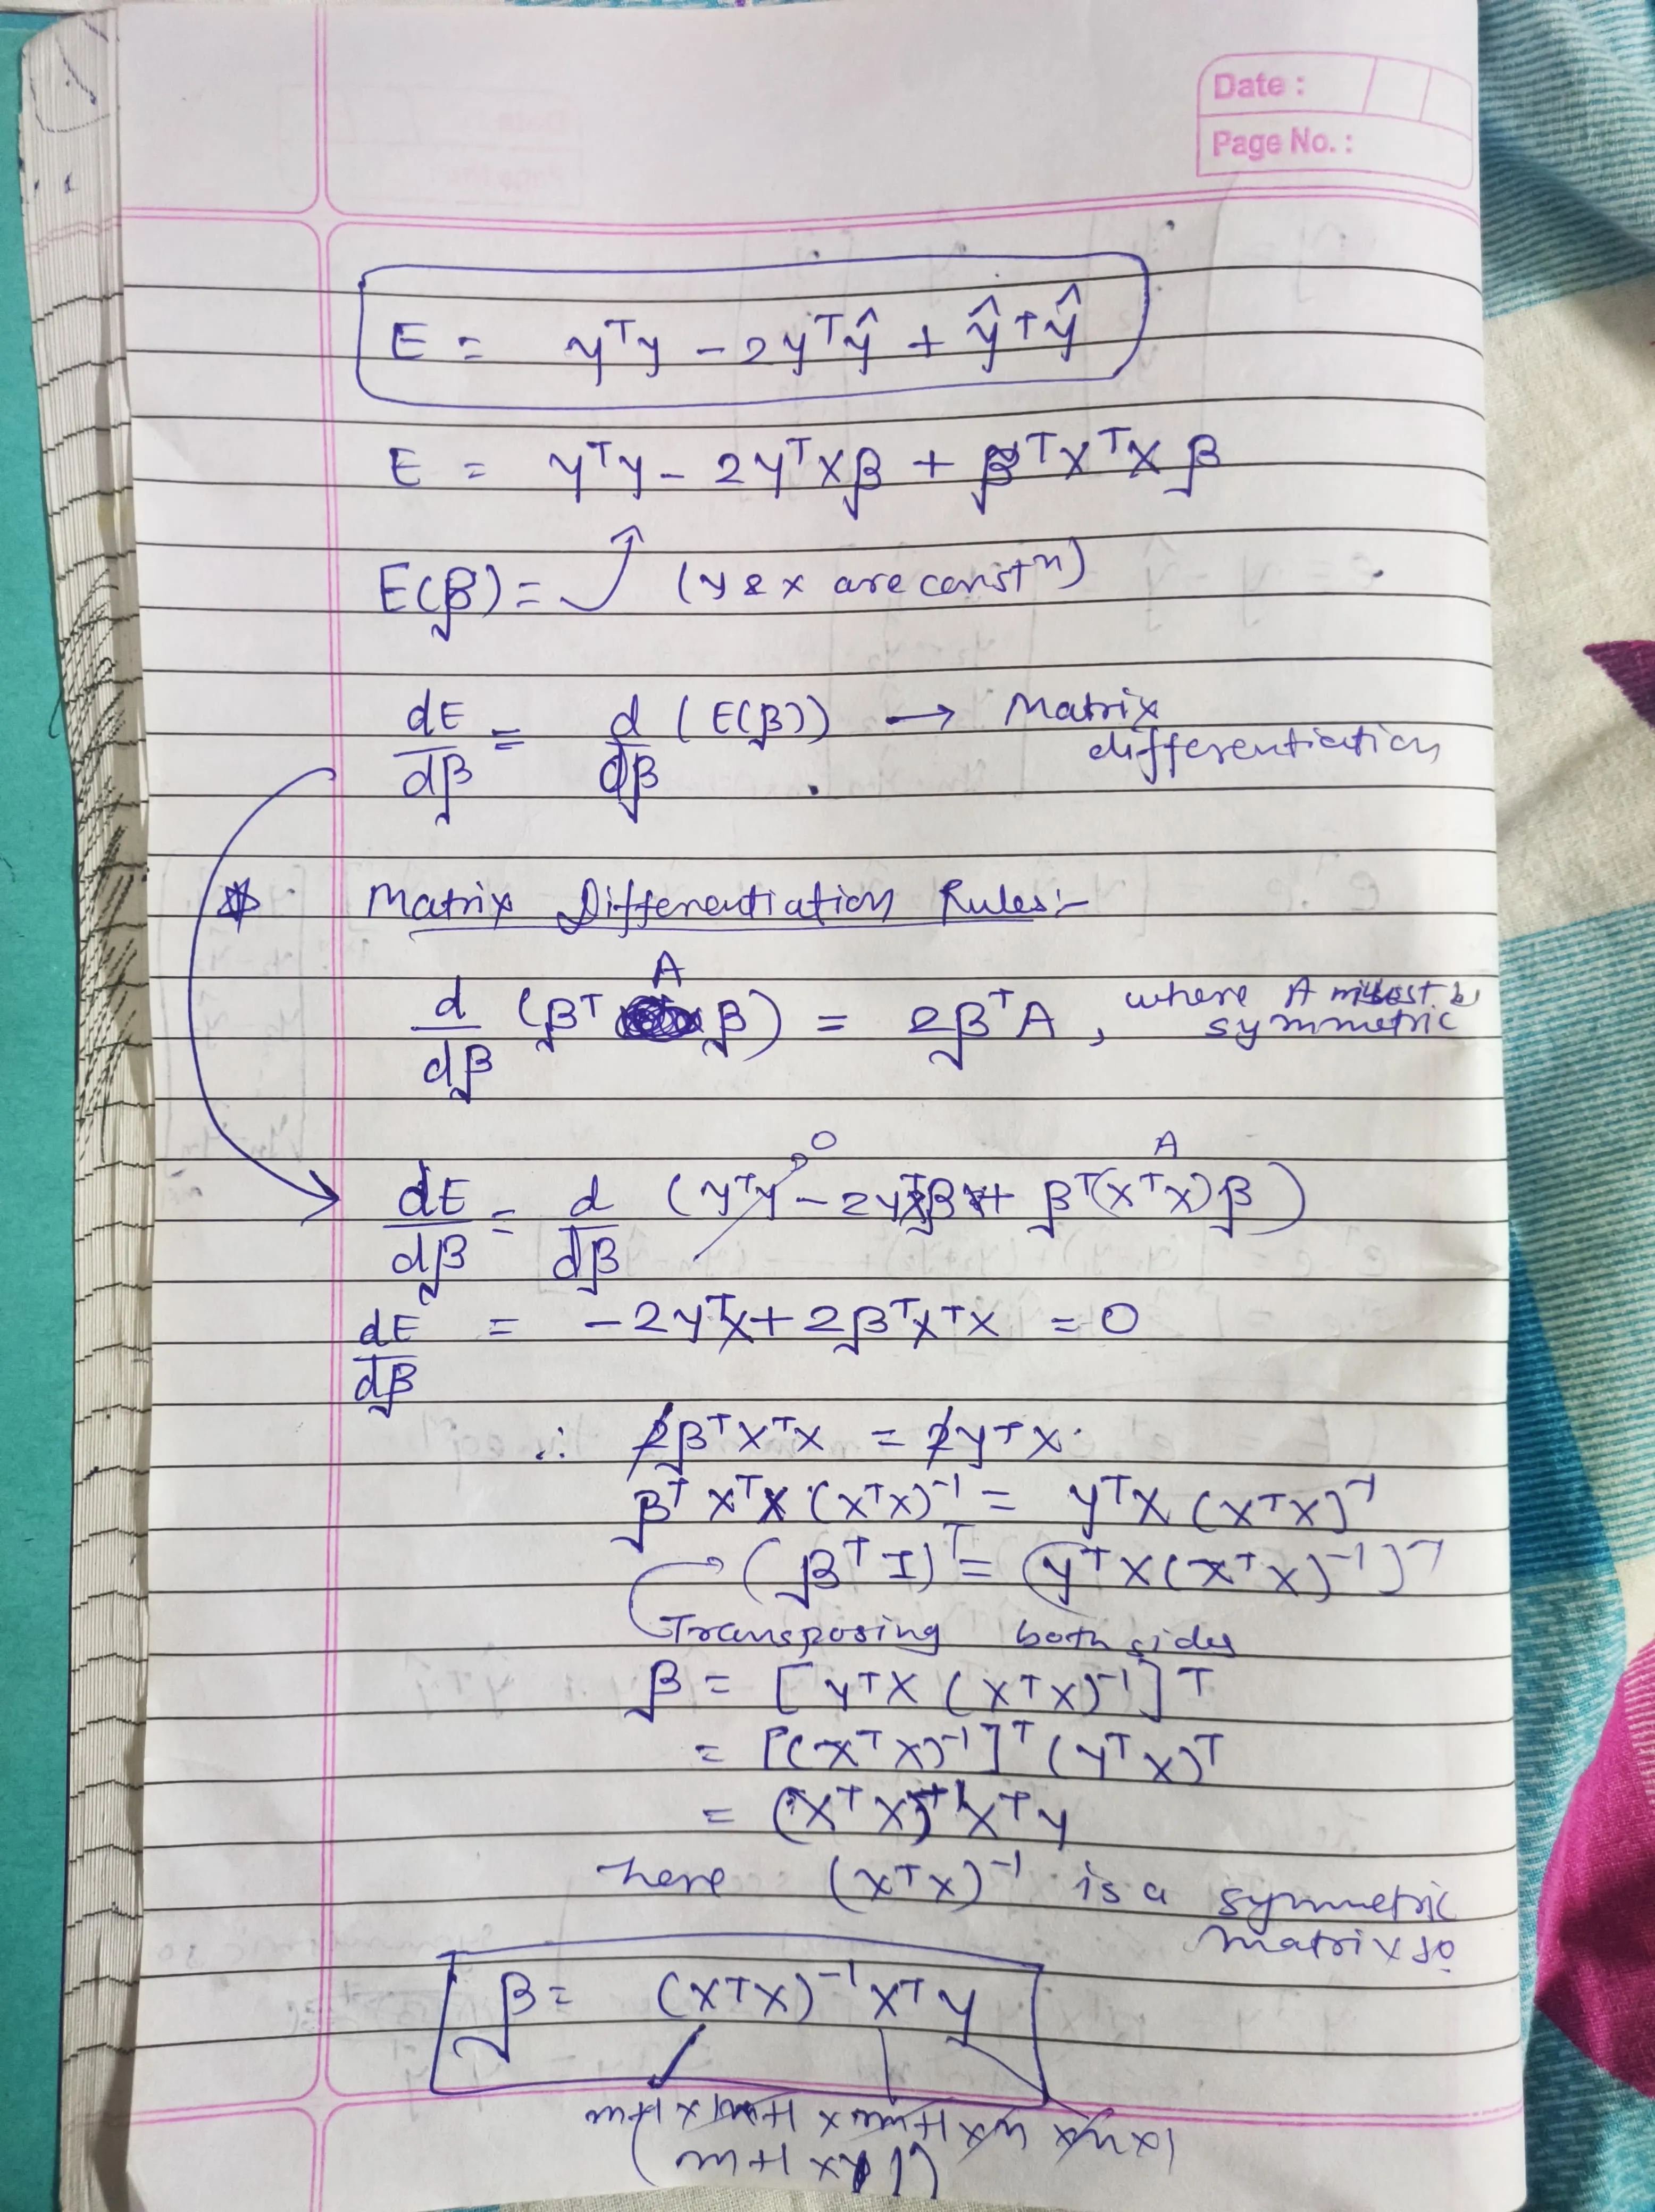 Date :
Page No. :
E = yᵀy - 2yᵀŷ + ŷᵀŷ
E = yᵀy - 2yᵀXβ + βᵀXᵀXβ
E(β) = (y & x are constⁿ)
dE/dβ = d/dβ (E(β)) → Matrix differentiation
* Matrix Differentiation Rules:-
d/dβ (βᵀ A β) = 2βᵀA, where A must be symmetric
dE/dβ = d/dβ (yᵀy - 2yᵀXβ + βᵀ(XᵀX)β)
0 A
dE/dβ = -2yᵀX + 2βᵀXᵀX = 0
∴ 2βᵀXᵀX = 2yᵀX
βᵀXᵀX (XᵀX)⁻¹ = yᵀX (XᵀX)⁻¹
(βᵀI)ᵀ = (yᵀX(XᵀX)⁻¹)ᵀ
Transposing both sides
β = [yᵀX (XᵀX)⁻¹]ᵀ
= [(XᵀX)⁻¹]ᵀ (yᵀX)ᵀ
= (XᵀX)⁻¹XᵀY
here (XᵀX)⁻¹ is a symmetric
matrix so
β = (XᵀX)⁻¹Xᵀy